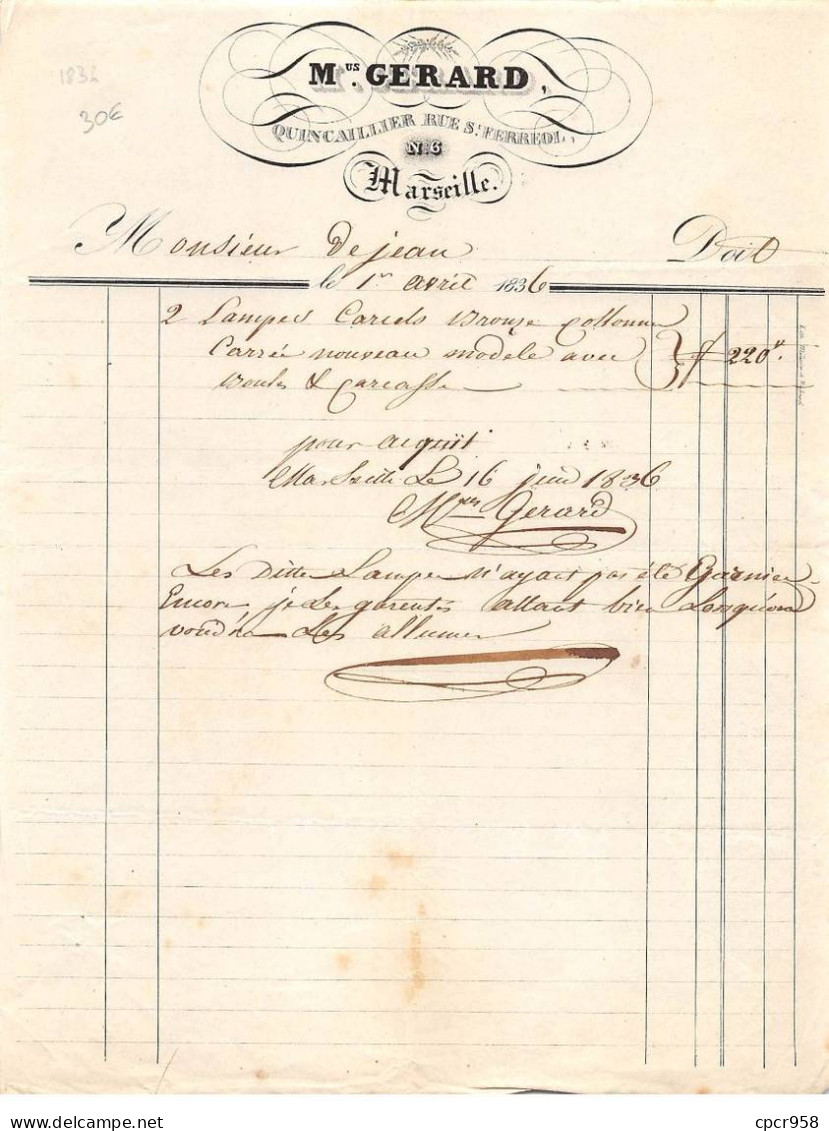 1836
30€
Mus. GERARD,
QUINCAILLIER RUE St. FERREOL,
No. 6
Marseille.
Monsieur Dejean Doit
le 1er avril 1836
2 Lampes Carcels Bronze Collonne
Carrée nouveau modele avec } f 220"
Boules & Carcasse
pour acquit
Marseille Le 16 juin 1836
Mus Gerard
Les Ditte Lampe n'ayant pas été Garnier
Encore, je Les garentis allant bien Lorsqu'on
voudra Les allumer
cpcr958